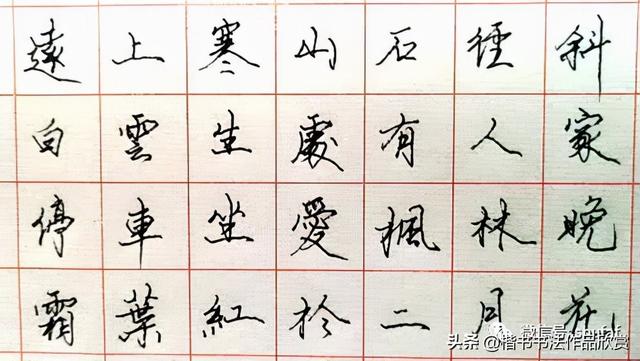 遠上寒山石徑斜
白雲生處有人家
停車坐愛楓林晚
霜葉紅於二月花
头条@楷书书法作品欣赏